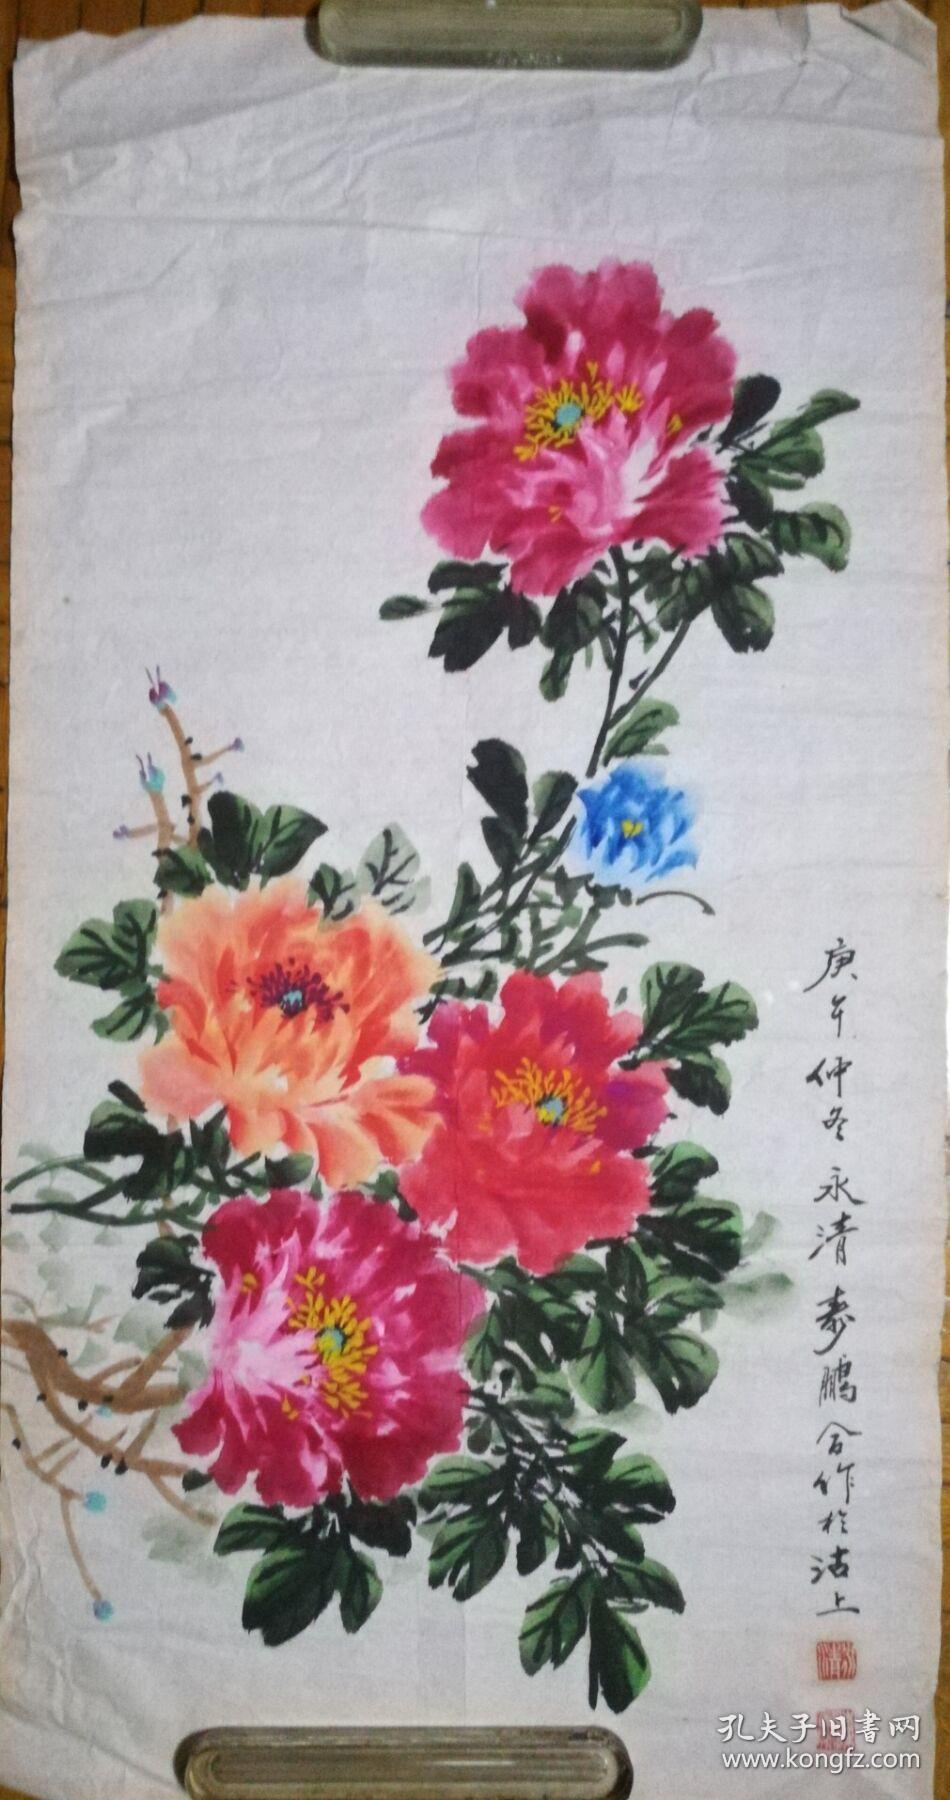 庚午仲冬永清泰鹏合作於沽上
孔夫子旧書网
www.kongfz.com